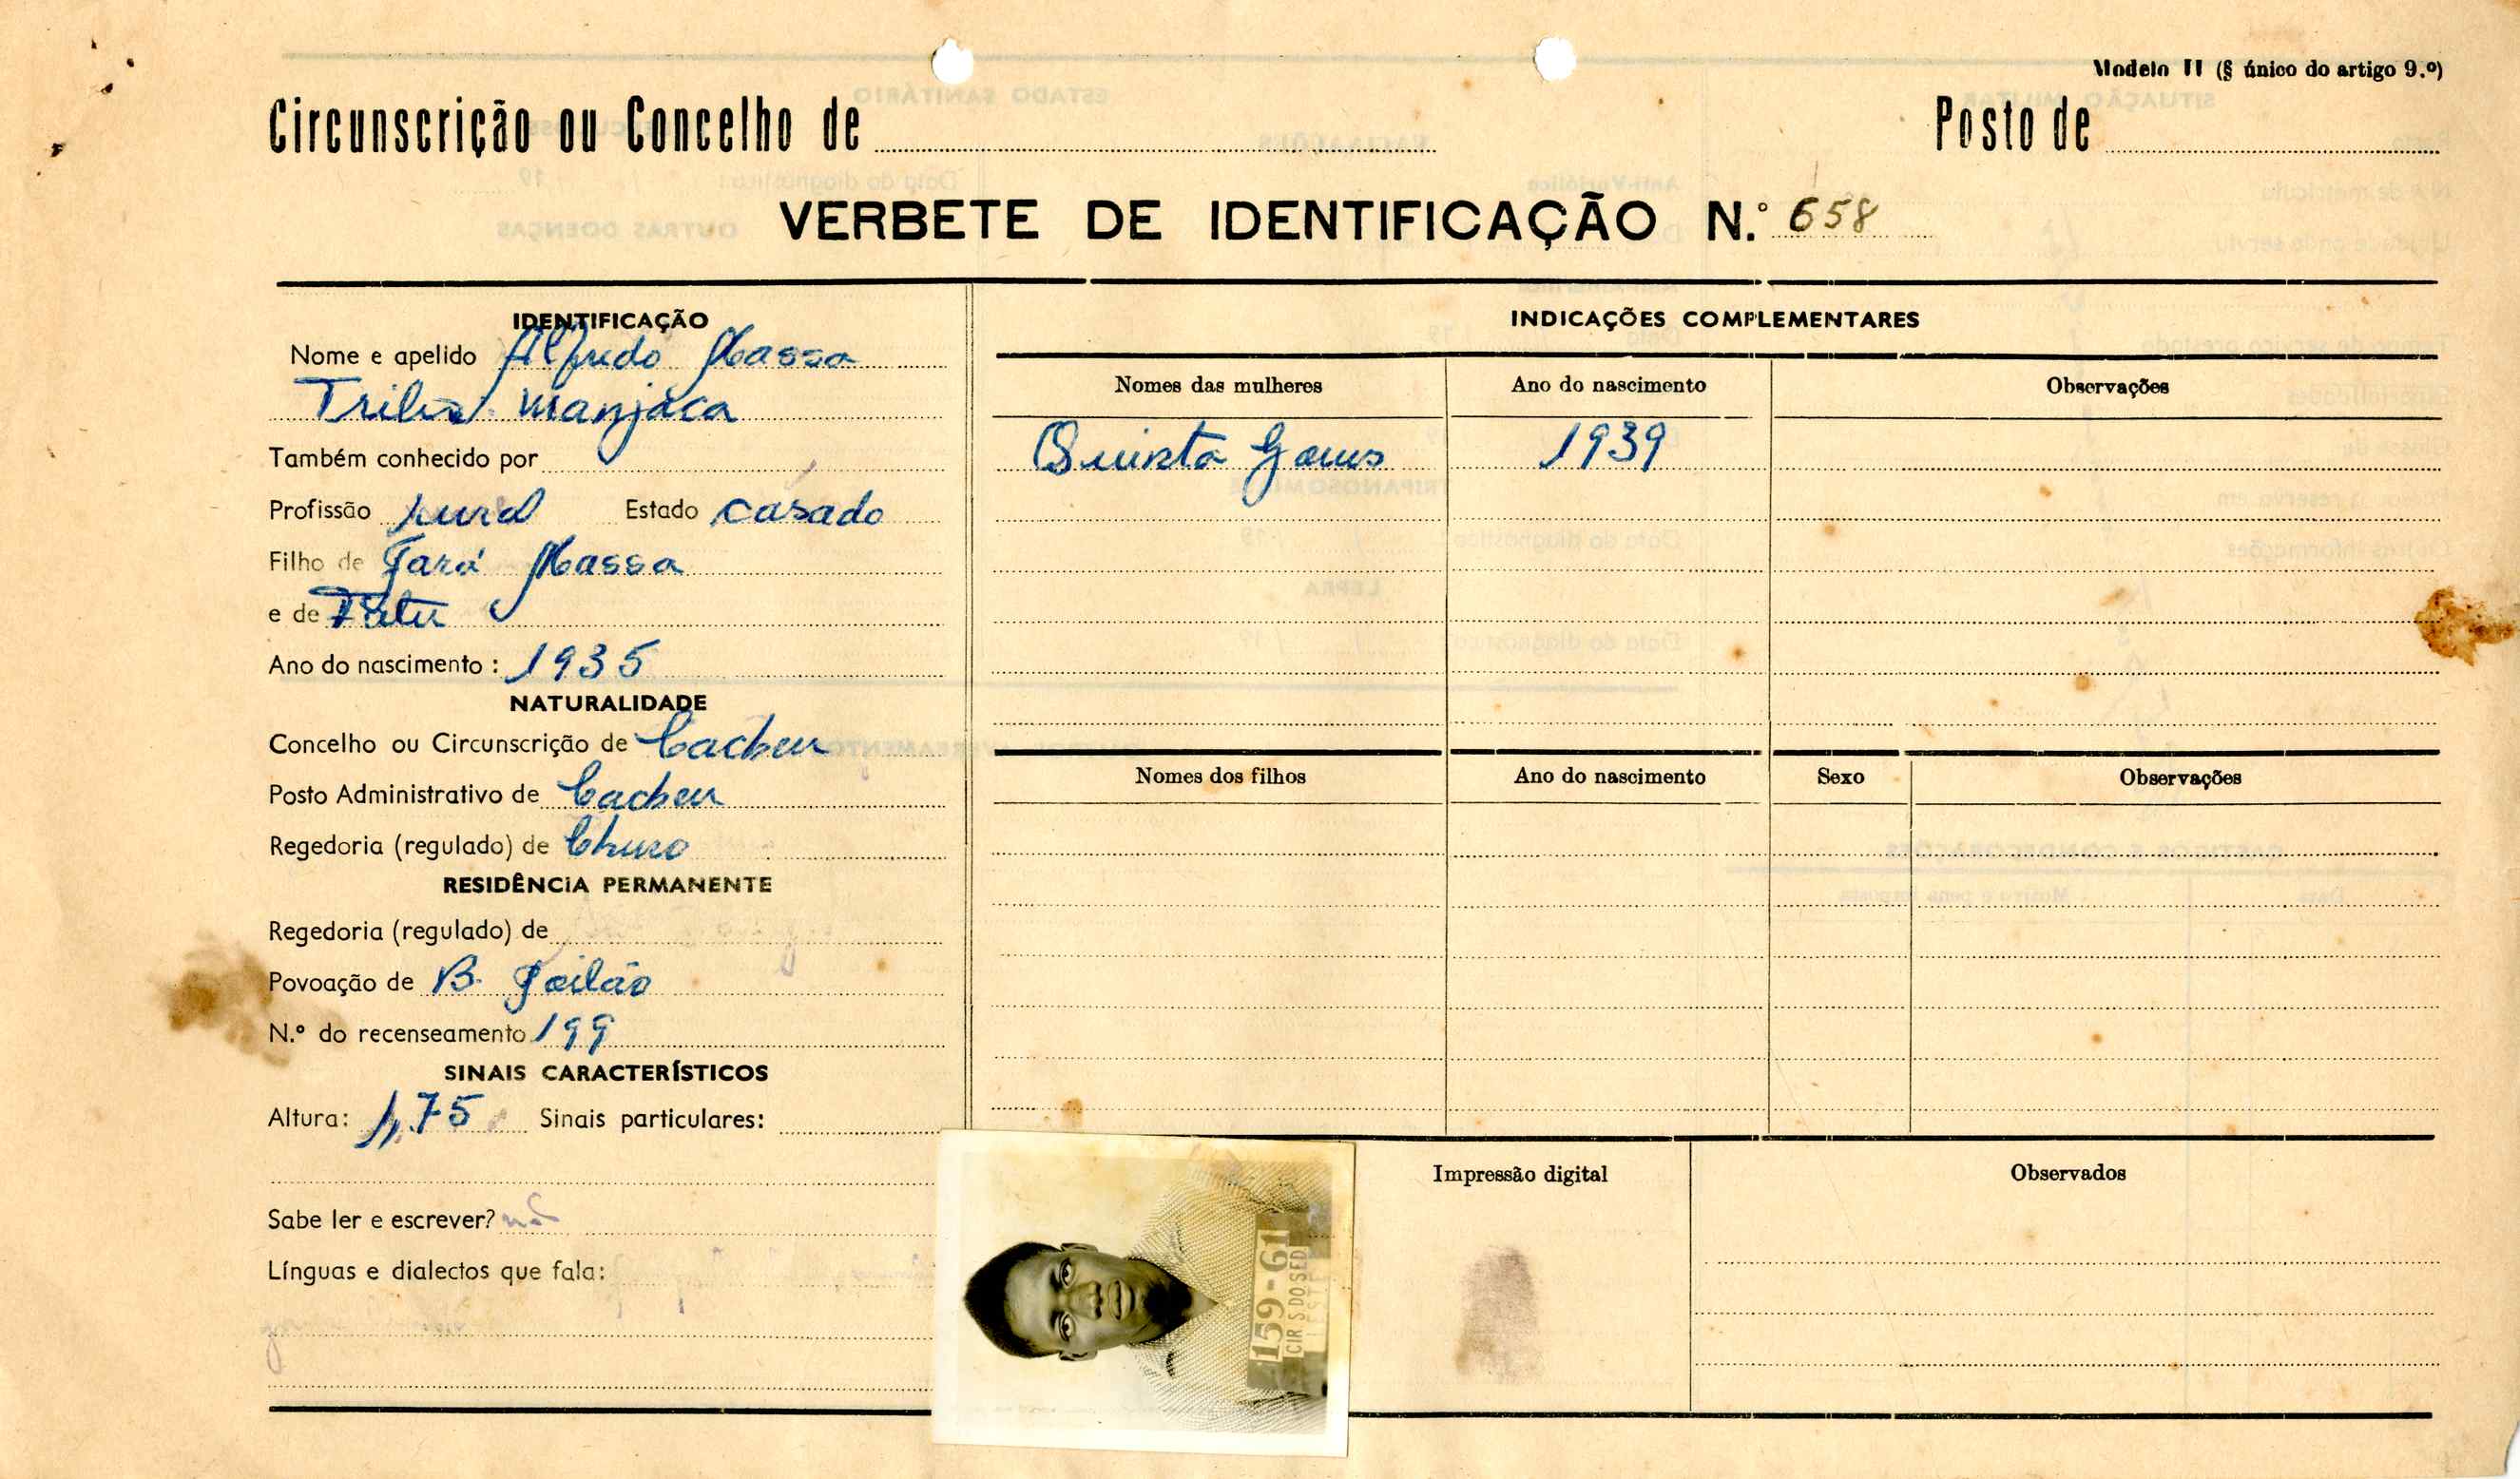 Modelo II (§ único do artigo 9.º)
Circunscrição ou Concelho de
Posto de
VERBETE DE IDENTIFICAÇÃO N.º 658
IDENTIFICAÇÃO
Nome e apelido Alfredo Massa
Tribo Manjaca
Também conhecido por
Profissão rural Estado casado
Filho de Massa
e de
Ano do nascimento: 1935
NATURALIDADE
Concelho ou Circunscrição de Cacheu
Posto Administrativo de Cacheu
Regedoria (regulado) de Churo
RESIDÊNCIA PERMANENTE
Regedoria (regulado) de
Povoação de B.
N.º do recenseamento 199
SINAIS CARACTERÍSTICOS
Altura: 1,75 Sinais particulares:
Sabe ler e escrever? não
Línguas e dialectos que fala:
INDICAÇÕES COMPLEMENTARES
Nomes das mulheres Ano do nascimento Observações
Quinta Gomes 1939
Nomes dos filhos Ano do nascimento Sexo Observações
159-61
Impressão digital
Observados